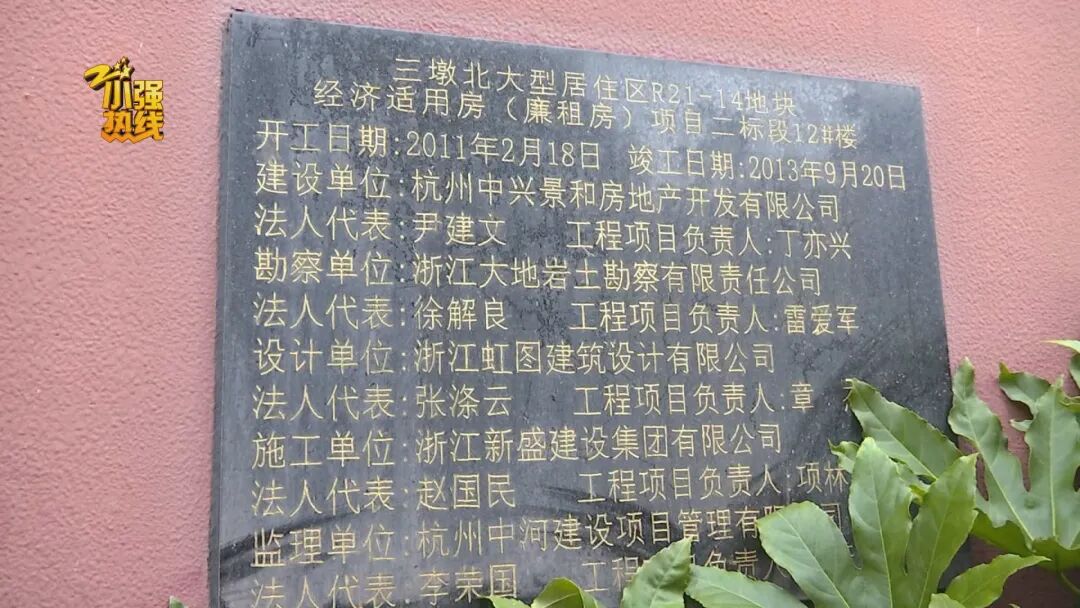 小强
热线
三墩北大型居住区R21-14地块
经济适用房（廉租房）项目二标段12#楼
开工日期:2011年2月18日 竣工日期:2013年9月20日
建设单位:杭州中兴景和房地产开发有限公司
法人代表:尹建文 工程项目负责人:丁亦兴
勘察单位:浙江大地岩土勘察有限责任公司
法人代表:徐解良 工程项目负责人:雷爱军
设计单位:浙江虹图建筑设计有限公司
法人代表:张涤云 工程项目负责人:章
施工单位:浙江新盛建设集团有限公司
法人代表:赵国民 工程项目负责人:项林
监理单位:杭州中河建设项目管理有限公司
法人代表:李荣国 工程项目负责